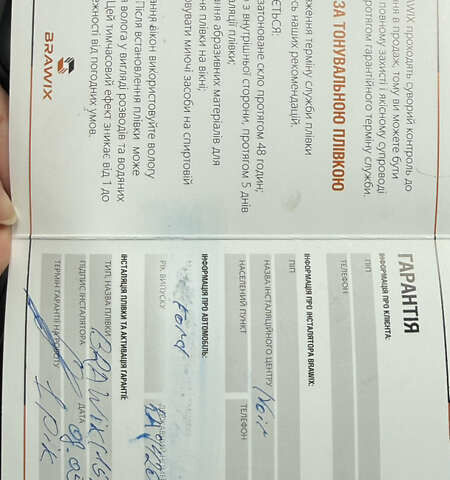 BRAWIX проходить суворий контроль до
ння в продаж, тому ви можете бути
повному захисті і якісному супроводі
ротягом гарантійного терміну служби.
ЗА ТОНУВАЛЬНОЮ ПЛІВКОЮ
ження терміну служби плівки
сь наших рекомендацій.
ЄТЬСЯ:
затоноване скло протягом 48 годин;
з внутрішньої сторони, протягом 5 днів
аляції плівки;
ння абразивних матеріалів для
ня плівки на вікні;
овувати миючі засоби на спиртовій
ання вікон використовуйте вологу
Після встановлення плівки може
я волога у вигляді розводів та водяних
Цей тимчасовий ефект зникає від 1 до
ежності від погодних умов.
BRAWIX
ГАРАНТІЯ
ІНФОРМАЦІЯ ПРО КЛІЄНТА:
ПІП
ТЕЛЕФОН
ІНФОРМАЦІЯ ПРО ІНСТАЛЯТОРА BRAWIX:
ПІП
НАЗВА ІНСТАЛЯЦІЙНОГО ЦЕНТРУ
НАСЕЛЕНИЙ ПУНКТ
ТЕЛЕФОН
ІНФОРМАЦІЯ ПРО АВТОМОБІЛЬ:
Ford
РІК ВИПУСКУ
ІНСТАЛЯЦІЯ ПЛІВКИ ТА АКТИВАЦІЯ ГАРАНТІЇ:
ТИП, НАЗВА ПЛІВКИ
ПІДПИС ІНСТАЛЯТОРА
ДАТА
ТЕРМІН ГАРАНТІЇ НА РОБОТУ
1 рік